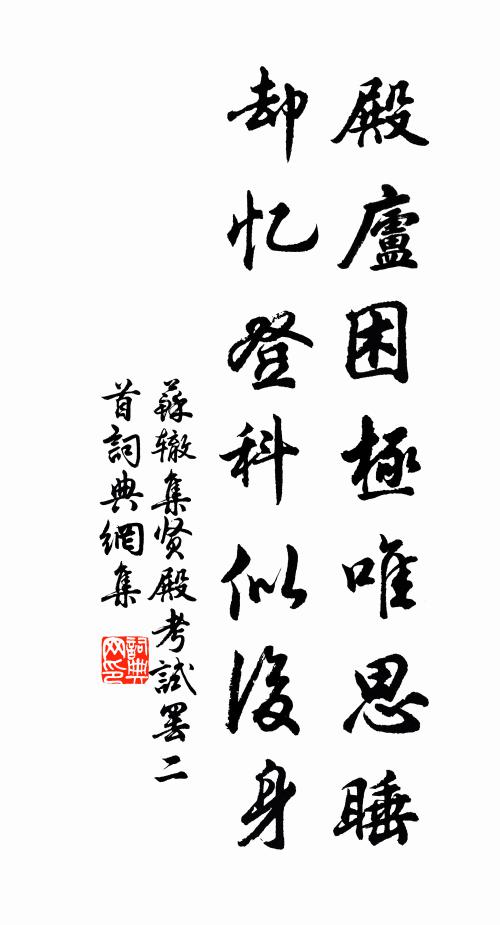 殿廬困極唯思睡
却忆登科似後身
蘇辙集贤殿考試罢二
首詞典網集
詞典网印